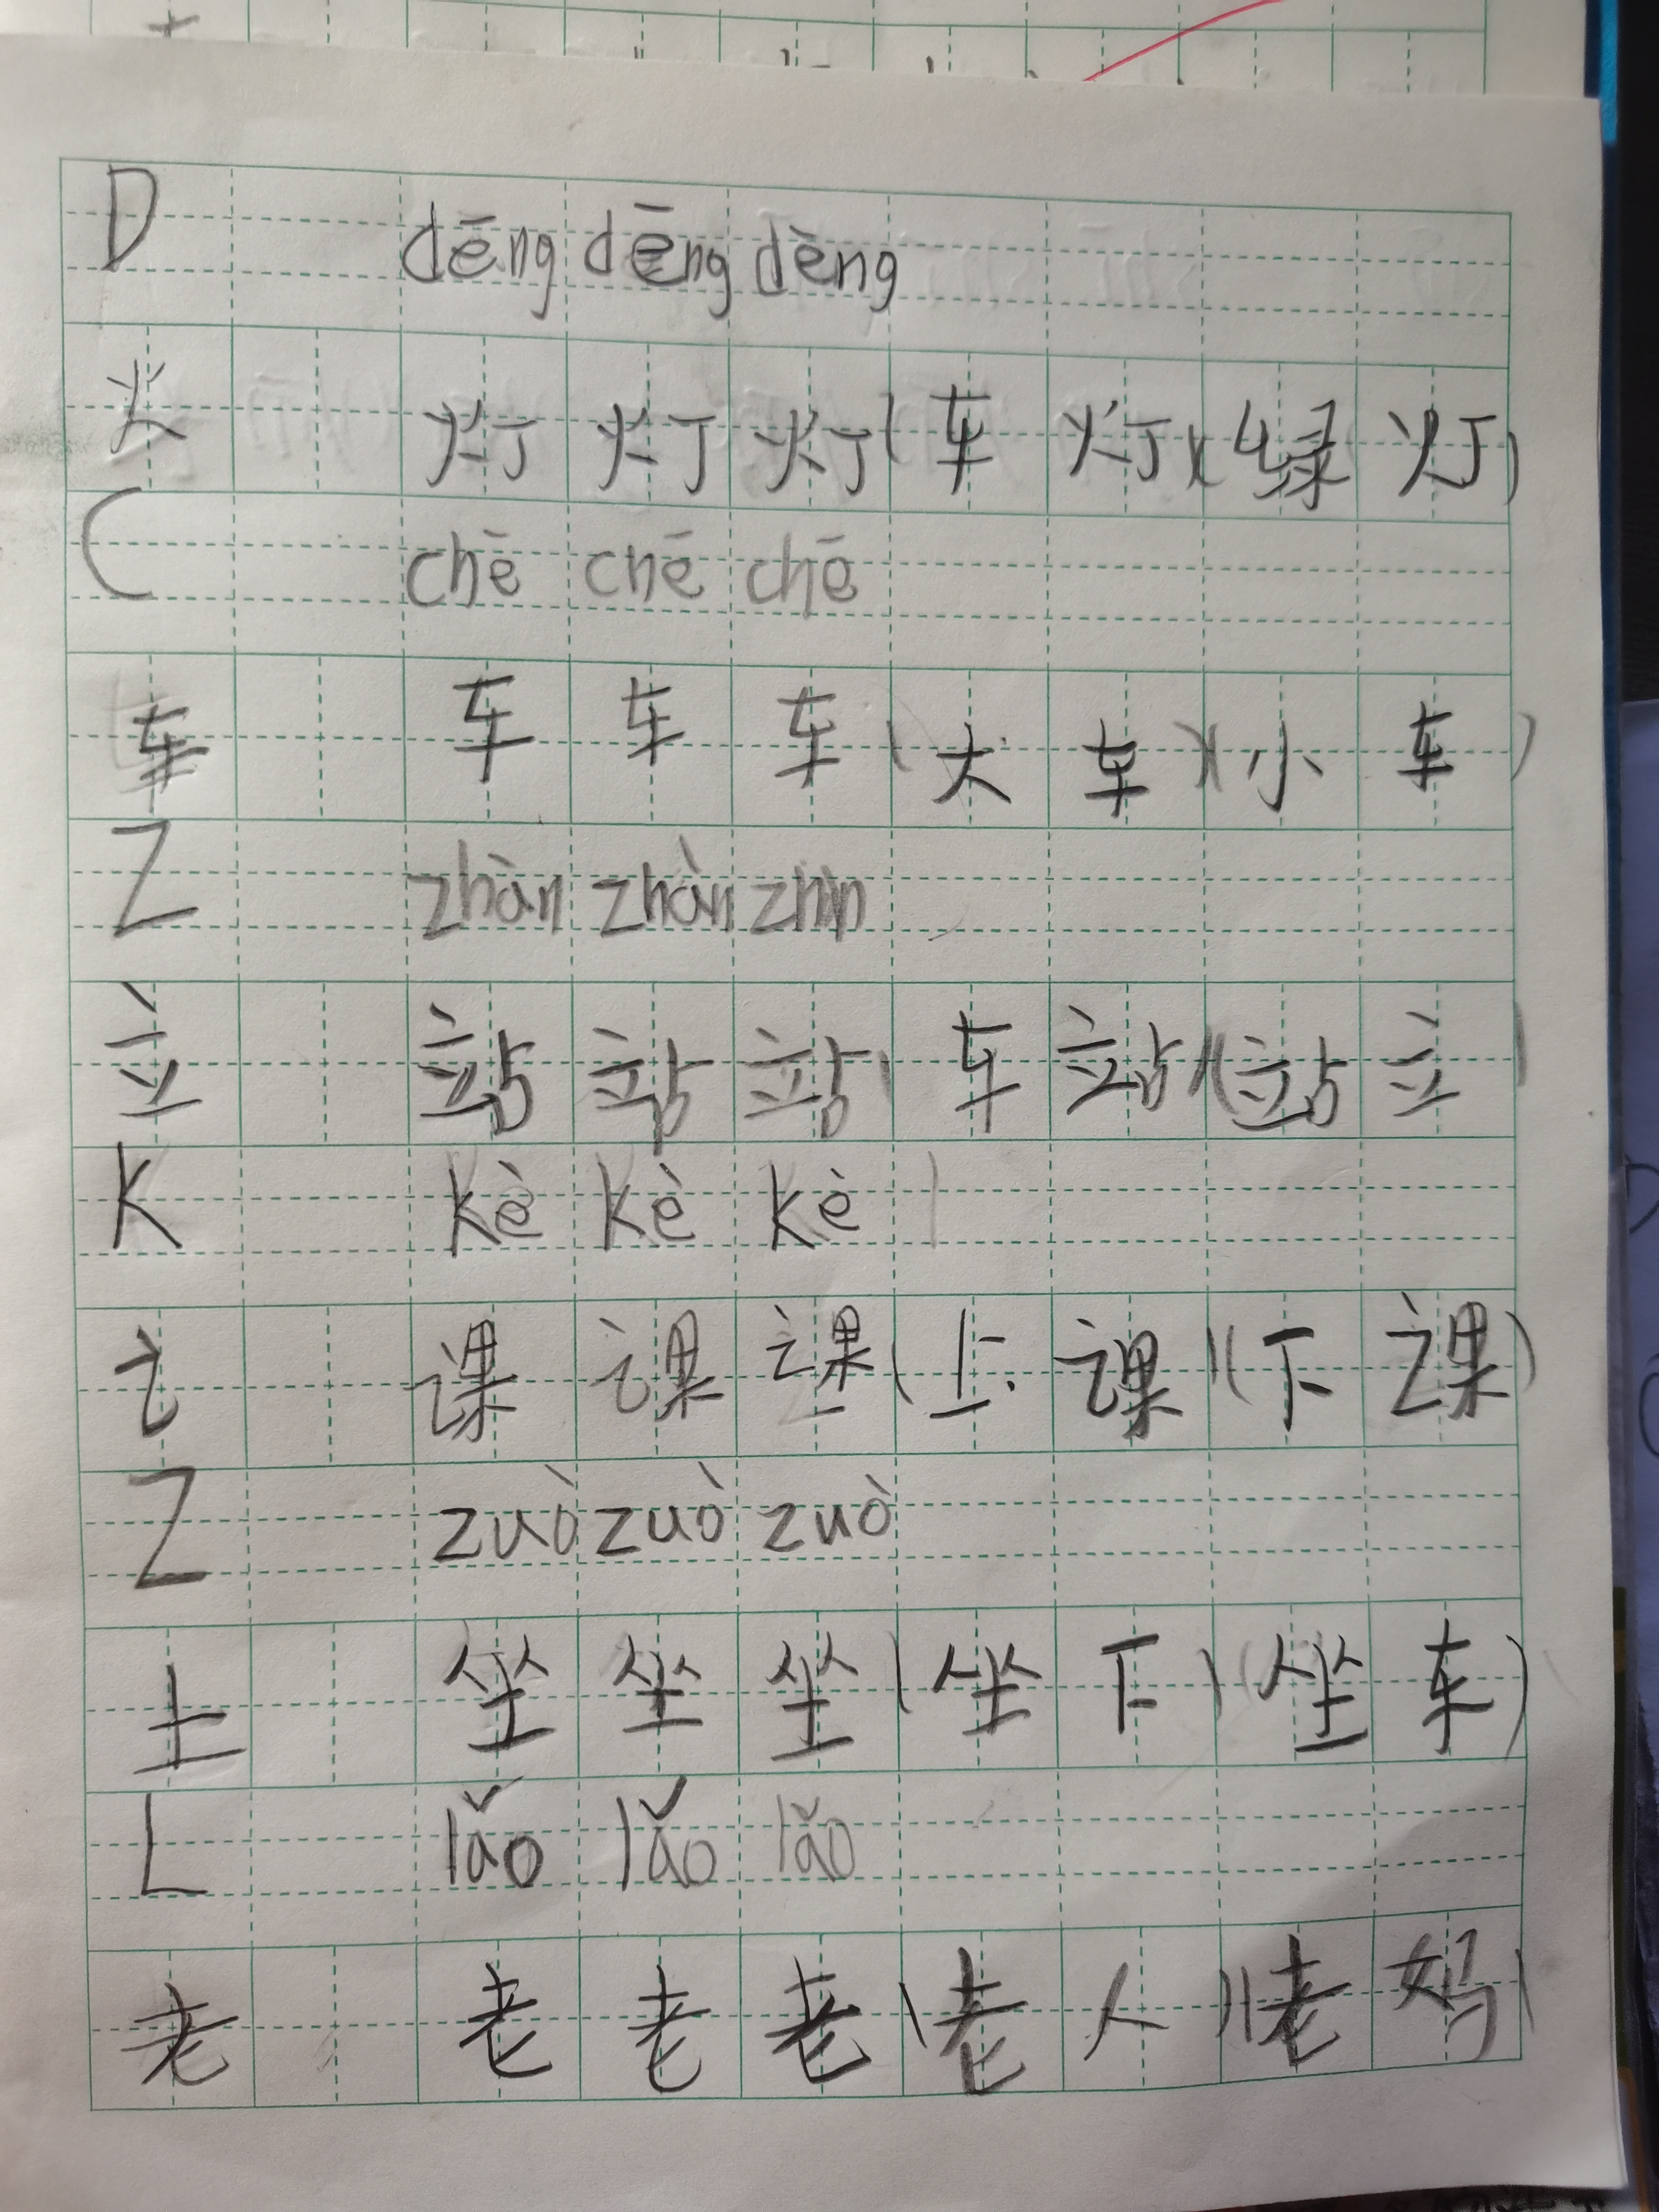 D dēng dēng dèng
火 灯 灯 灯 (车 灯)(绿 灯)
C chē chē chē
车 车 车 车 (大 车)(小 车)
Z zhàn zhàn zhàn
立 站 站 站 (车 站)(站 立)
K kè kè kè
讠 课 课 课 (上 课)(下 课)
Z zuò zuò zuò
土 坐 坐 坐 (坐 下)(坐 车)
L lǎo lǎo lǎo
老 老 老 老 (老 人)(老 妈)